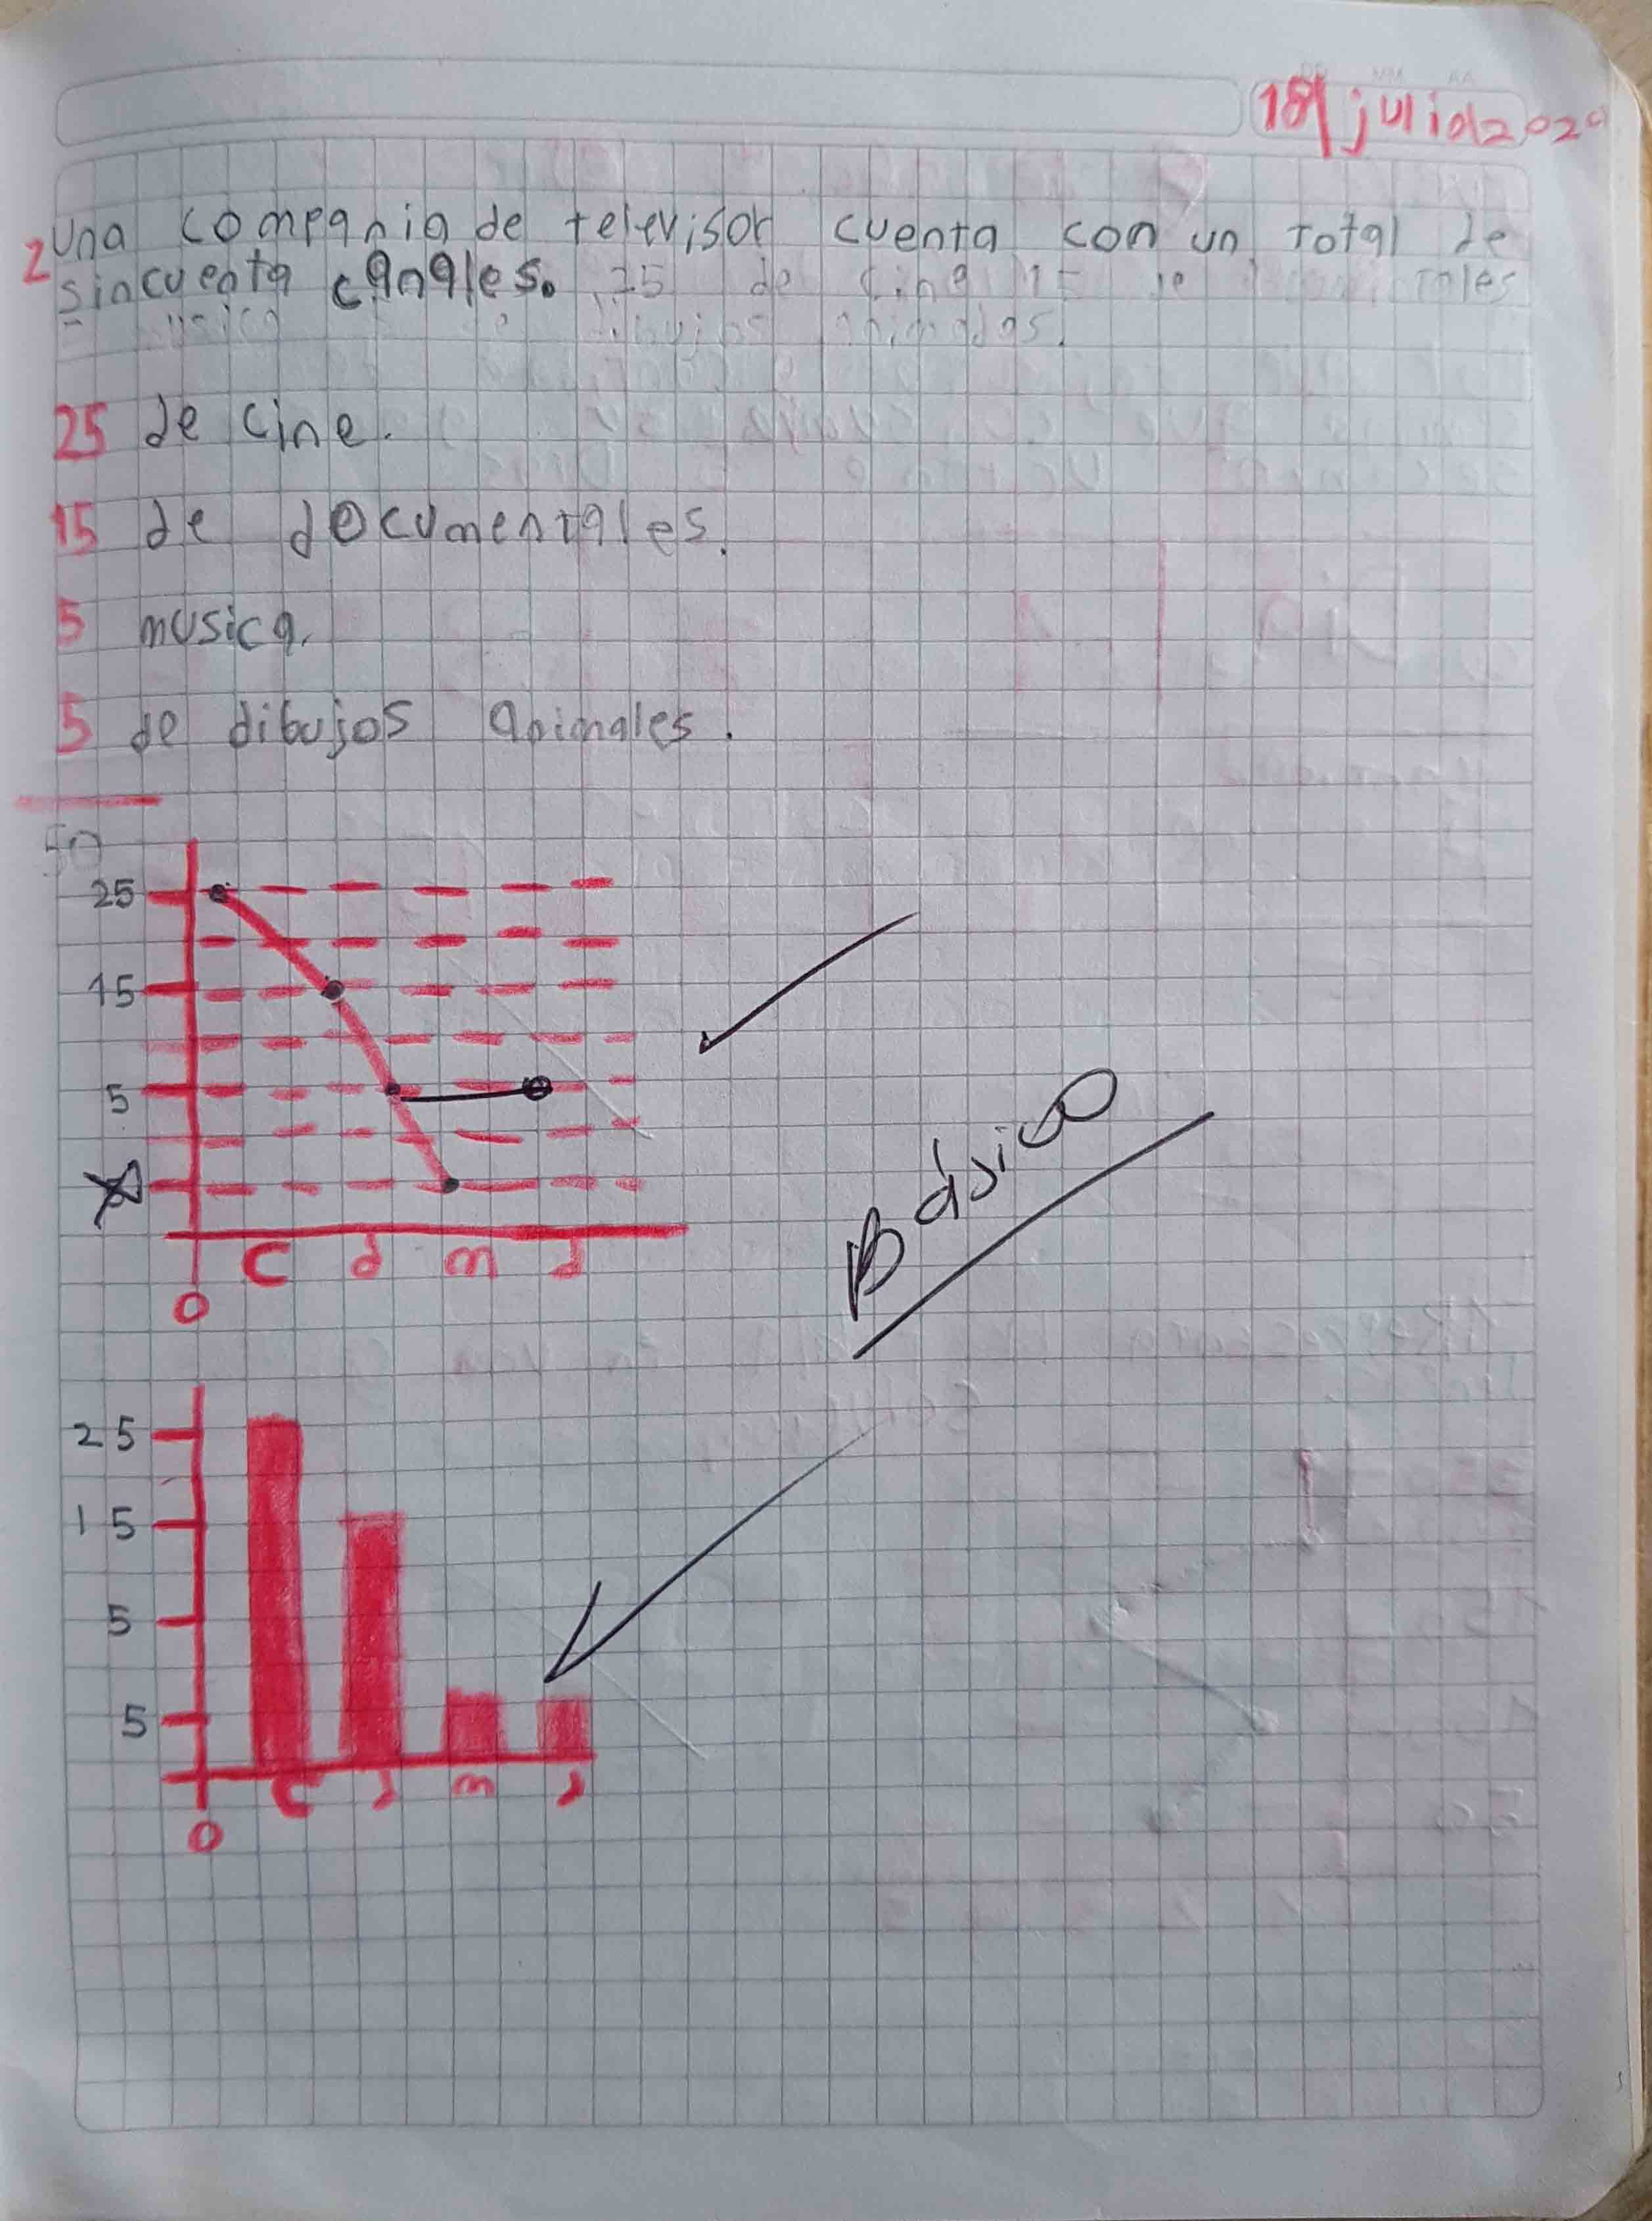 18 julio 202
2 Una compania de televisor cuenta con un total de
sincuenta canales. 25 de cine 15 de
musica de dibujos animados.
25 de cine.
15 de documentales.
5 musica.
5 de dibujos animales.
50
25
15
5
C d m d
0
Básico
25
15
5
5
C d m d
0